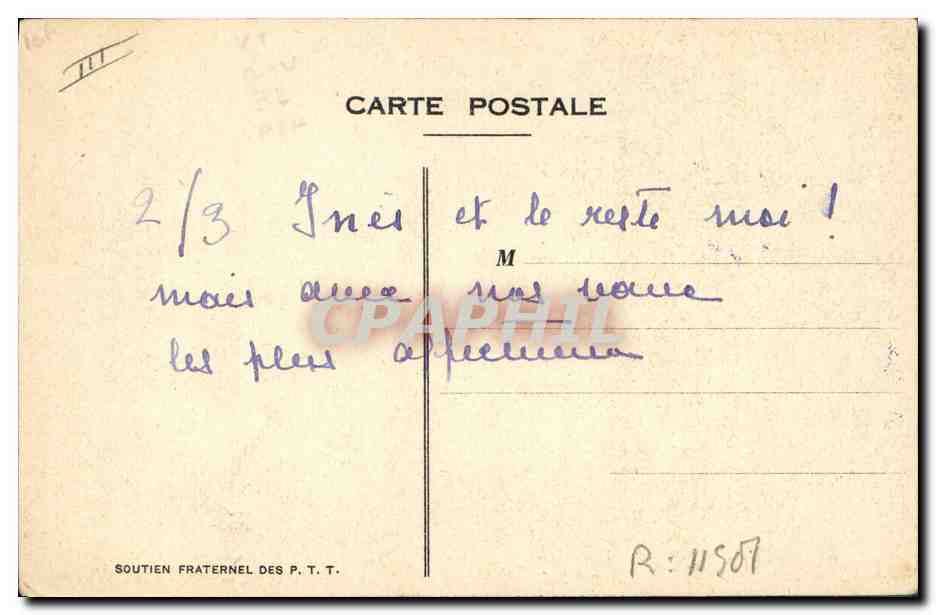 III
CARTE POSTALE
2/3 Inès et le reste moi !
M
mais avec nos vœux
les plus affectueux
CPAPHIL
SOUTIEN FRATERNEL DES P. T. T.
R : 11501